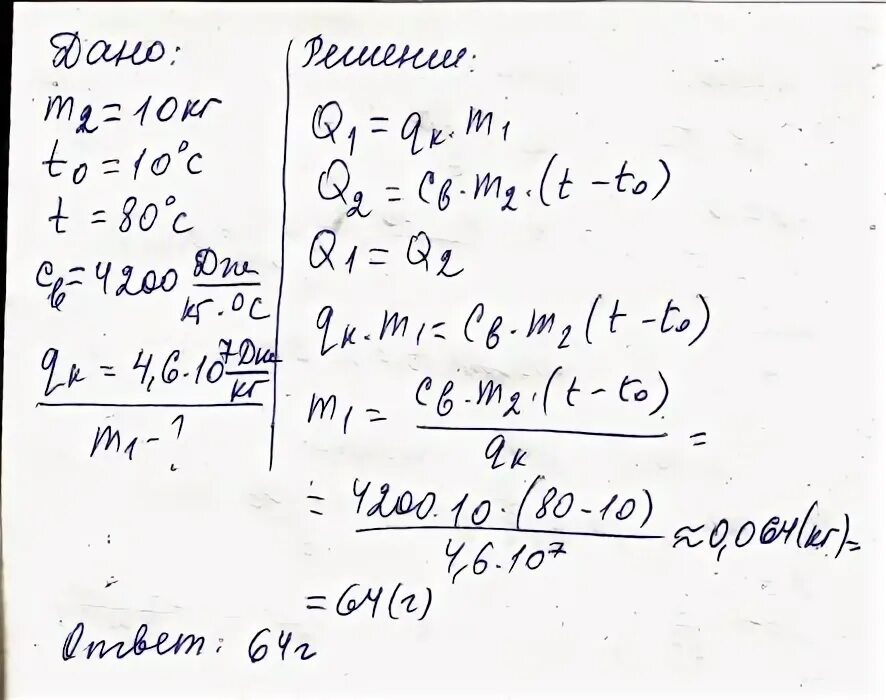 Дано:
m₂ = 10 кг
t₀ = 10°c
t = 80°c
cв = 4200 Дж/кг·°C
qк = 4,6·10⁷ Дж/кг
m₁ - ?
Решение:
Q₁ = qк·m₁
Q₂ = Cв·m₂·(t – t₀)
Q₁ = Q₂
qк·m₁ = Cв·m₂(t – t₀)
m₁ = Cв·m₂·(t – t₀)/qк =
= 4200·10·(80 - 10)/4,6·10⁷ ≈ 0,064(кг) =
= 64(г)
Ответ: 64г